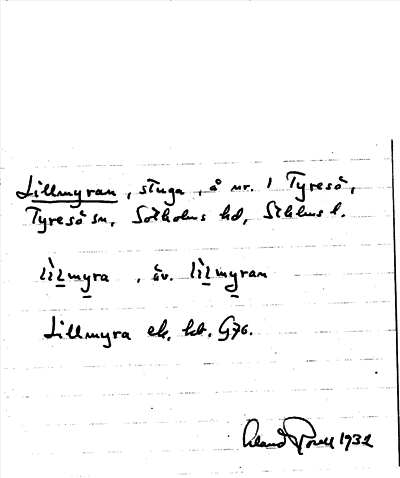 Lillmyran, stuga, å nr. 1 Tyresö,
Tyresö sn, Sotholms hd, Sthlms l.
lìlmyra, äv. lìlmyran
Lillmyra ek. kb. G76.
1932